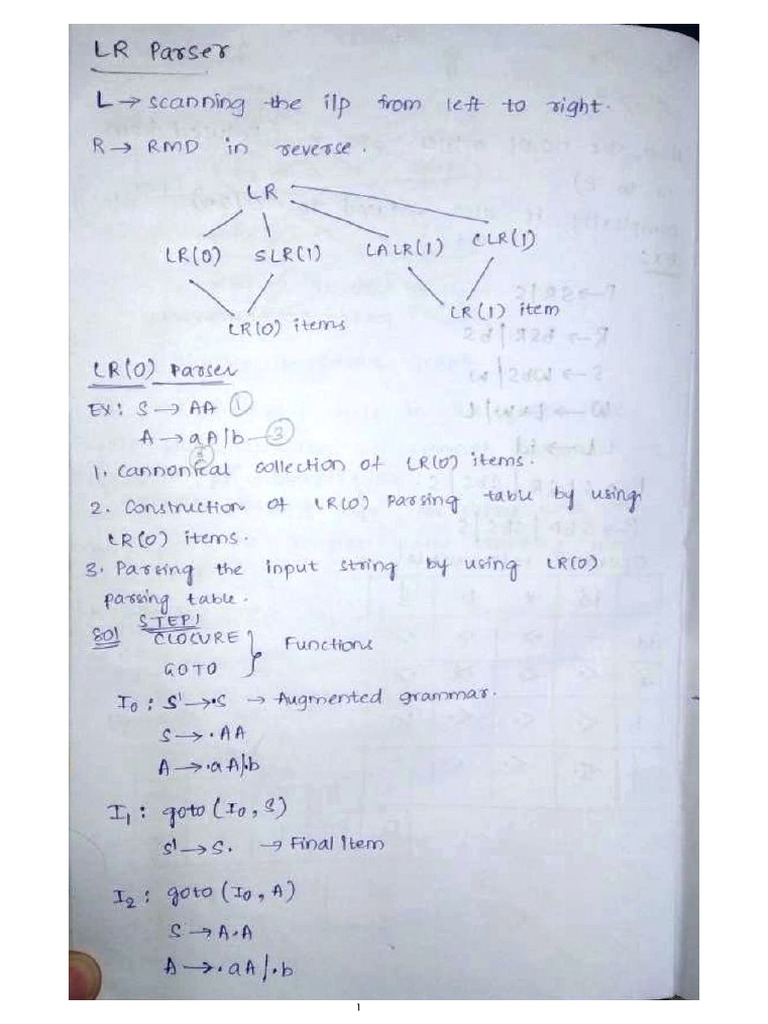 LR Parser
L → scanning the i/p from left to right.
R → RMD in reverse.
LR
LR(0) SLR(1) LALR(1) CLR(1)
LR(0) items LR(1) item
LR(0) Parser
EX: S → AA ①
A → aA|b — ③
②
1. Cannonical collection of LR(0) items.
2. Construction of LR(0) Parsing table by using
LR(0) items.
3. Parsing the input string by using LR(0)
parsing table.
STEP1
Sol CLOCURE } Functions
GOTO
I₀ : S' → .S → Augmented grammar.
S → .AA
A → .aA|.b
I₁ : goto (I₀, S)
S' → S. → Final Item
I₂ : goto (I₀, A)
S → A.A
A → .aA|.b
1